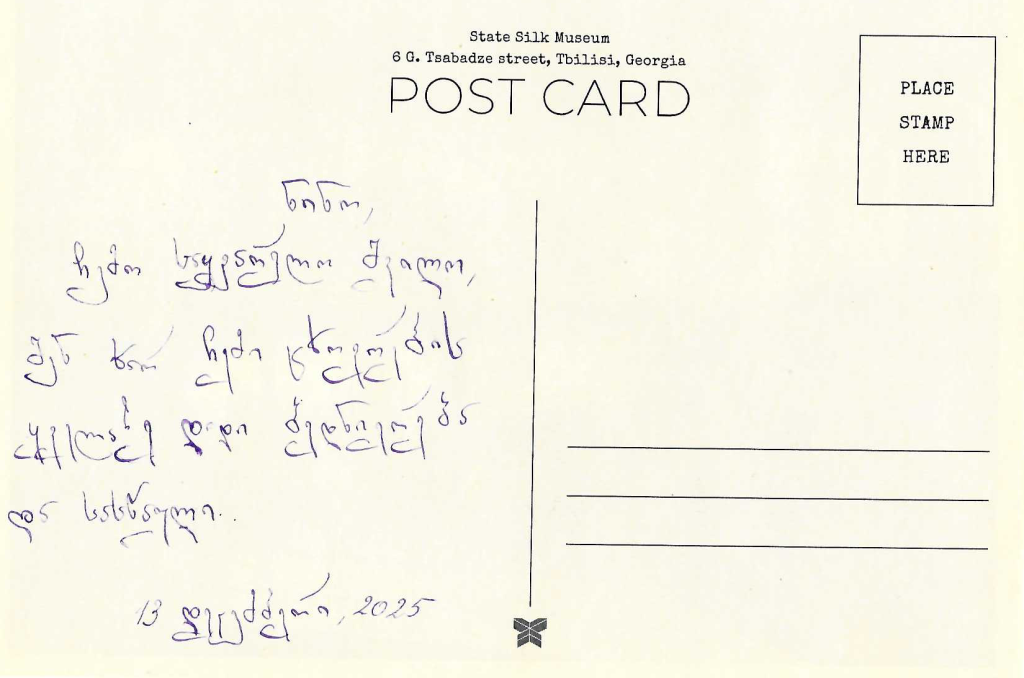 State Silk Museum
6 G. Tsabadze street, Tbilisi, Georgia
POST CARD
PLACE
STAMP
HERE
ნინო,
ჩემო საყვარელო შვილო,
შენ ხარ ჩემი ცხოვრების
ყველაზე დიდი ბედნიერება
და სასწაული.
13 დეკემბერი, 2025